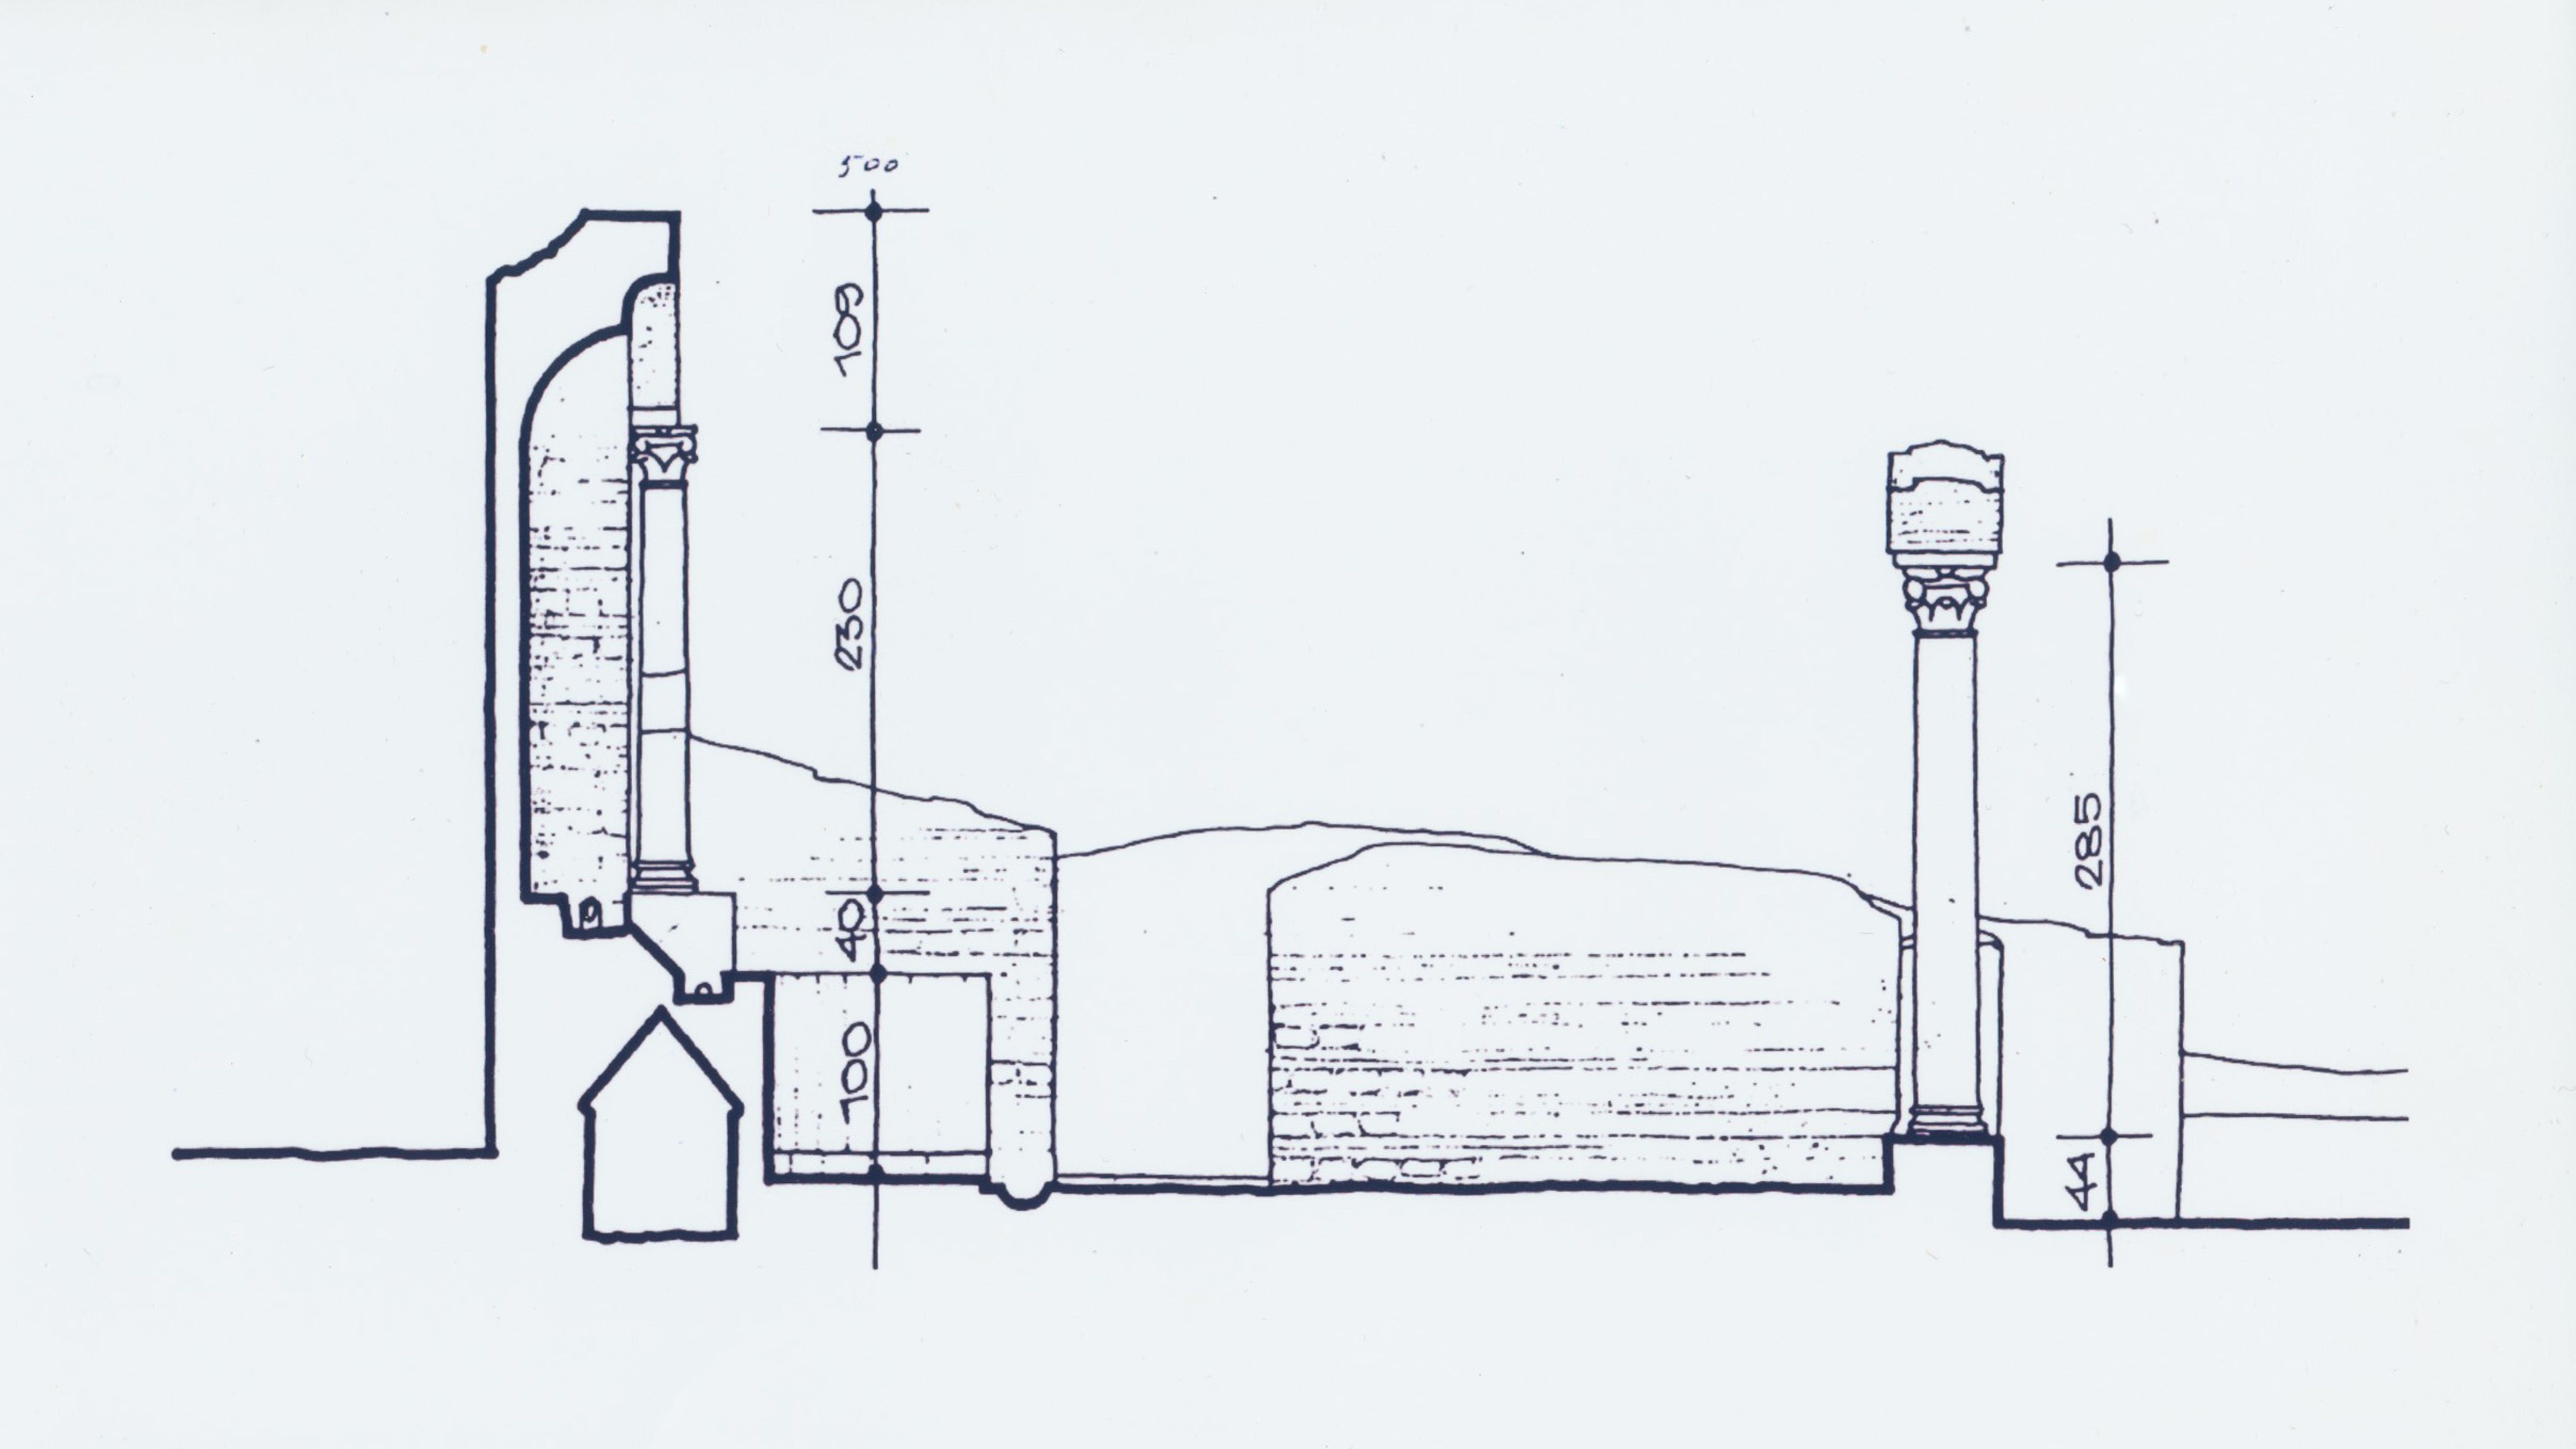 500
109
230
40
100
285
44